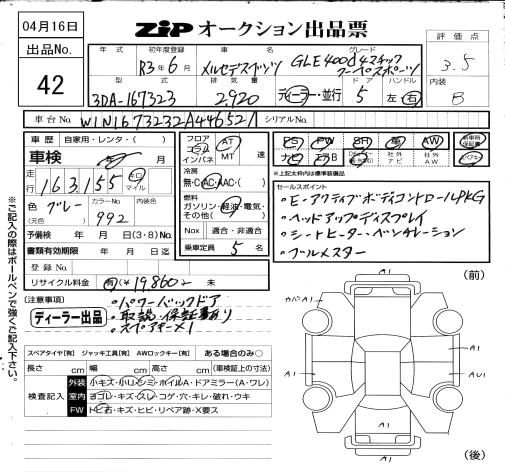 04月16日
ZIP オークション出品票
評価点
3.5
内装
B
出品No.
42
年式 初年度登録 車名 グレード
R3年6月 メルセデスベンツ GLE400d 4マチック クーペスポーツ
型式 排気量 ドア ハンドル
3DA-167323 2920 ディーラー・並行 5 左・右
車台No. W1N1673232A446521 シリアルNo.
車歴 自家用・レンタ・( )
車検 年 月
走行 163,155 キロ マイル
色 グレー (元色) カラーNo. 992 内装色
予備検 年 月 日(3・8)No.
書類有効期限 年 月 日迄
登録No.
リサイクル料金 有(¥19860) 未
フロア コラム インパネ AT MT 速
冷房 無・C・AC・AAC・( )
燃料 ガソリン・軽油・電気・その他( )
Nox 適合・非適合
乗車定員 5 名
PS PW SR 革 AW
ナビ エアB 社外ナビ 社外AW
新車時保証書
※上記太枠内は標準装備品
セールスポイント
・E-アクティブボディコントロールPKG
・ヘッドアップディスプレイ
・シートヒーター・ベンチレーション
・ブルメスター
(注意事項)
ディーラー出品
・パワーバックドア
・取説・保証書あり
・スペアキー×1
スペアタイヤ[有] ジャッキ工具[有] AWロックキー[有] ある場合のみ○
長さ cm 幅 cm 高さ cm (車検証上の寸法)
検査記入
外装 小キズ・小リ・シミ・ホイルA・ドアミラー(A・ワレ)
室内 ヨゴレ・キズ・スレ・コゲ・穴・キレ・破れ・ウキ
FW トビ石・キズ・ヒビ・リペア跡・X要ス
※ご記入の際はボールペンで強くご記入下さい。
(前)
A1
カバA1
A1
A1
A1
AU1
A1
(後)